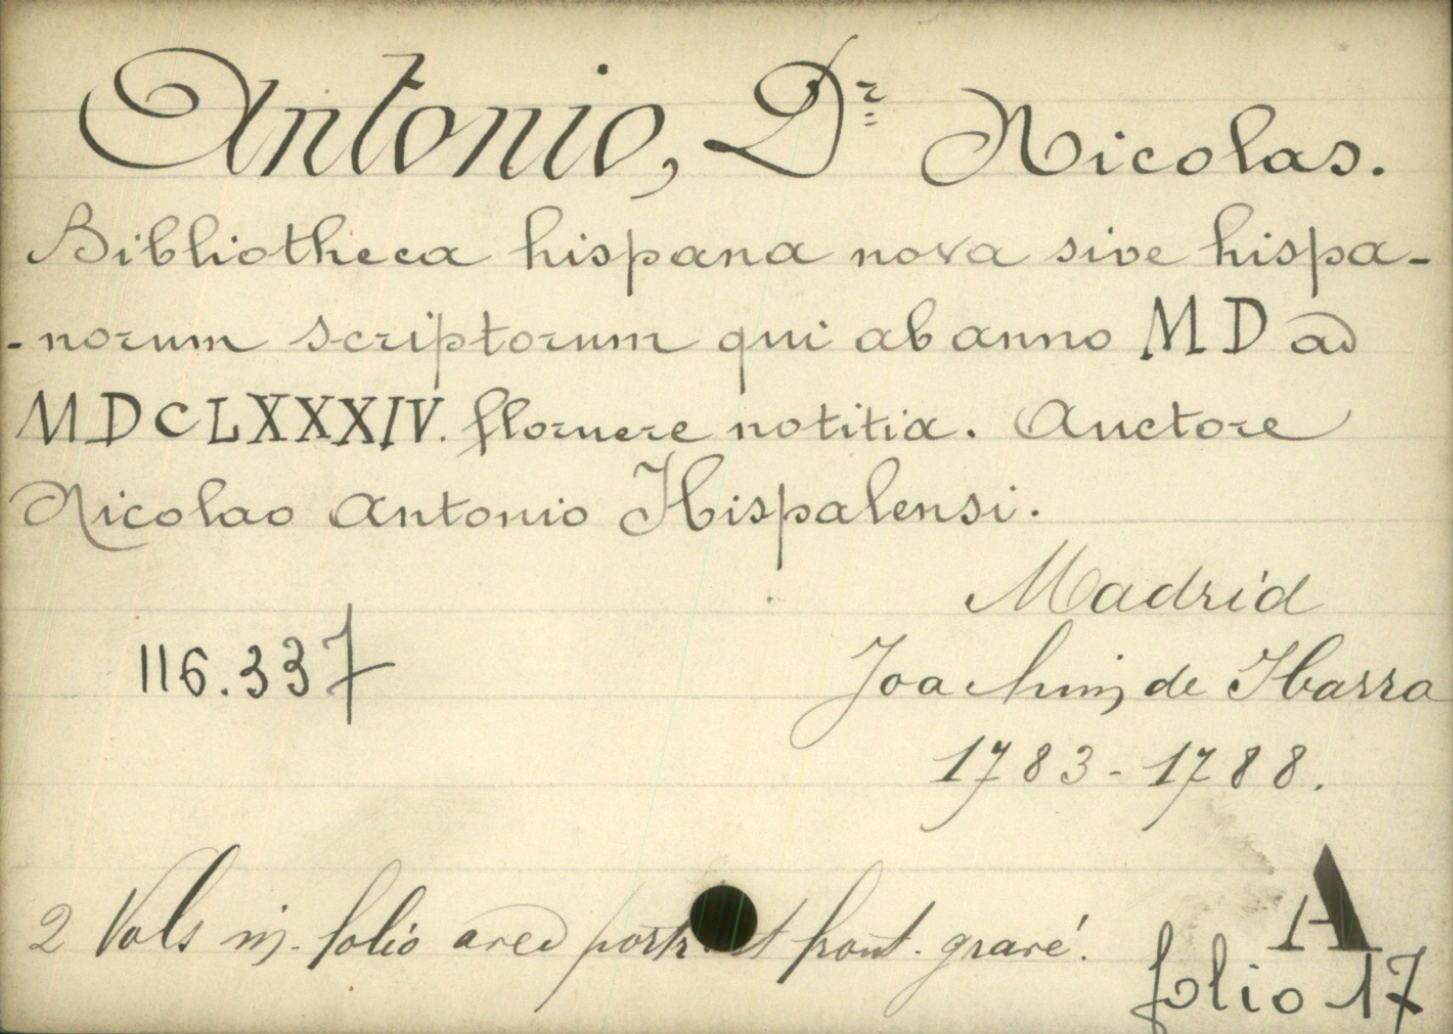 Antonio, Dr Nicolas.
Bibliotheca hispana nova sive hispa-
-norum scriptorum qui ab anno MD ad
MDCLXXXIV. floruere notitia. Auctore
Nicolao Antonio Hispalensi.
Madrid
116.337
Joachim de Ibarra
1783-1788.
2 Vols in-folio avec portr. et front. gravé.
A
folio 17